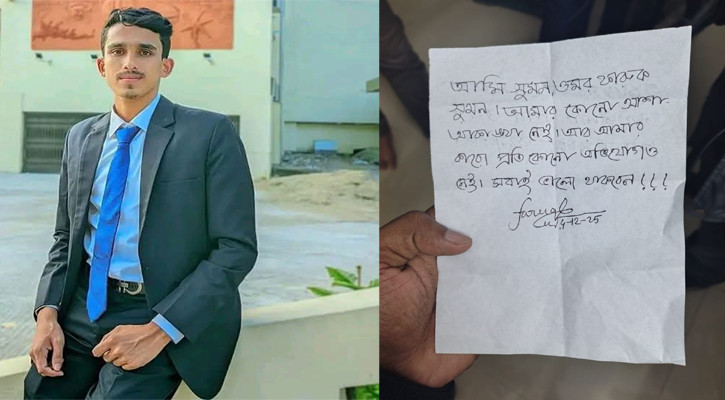 আমি সুমন, ওমর ফারুক
সুমন। আমার কোনো আশা-
আকাঙ্ক্ষা নেই। আর আমার
কারো প্রতি কোনো অভিযোগও
নেই। সবাই ভালো থাকবেন!!!
14-12-25